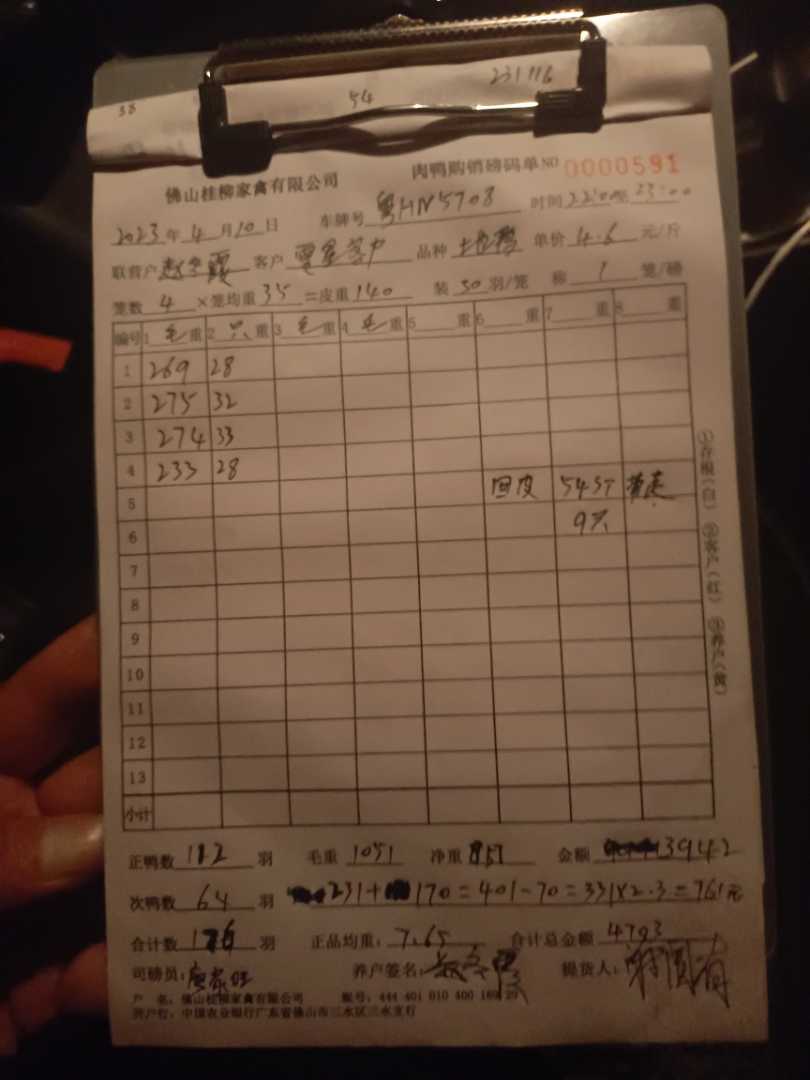 38 54 231116
佛山桂柳家禽有限公司 肉鸭购销磅码单 NO 0000591
2023年4月10日 车牌号 粤HN5708 时间 22:00至23:00
联营户 霞 客户 品种 单价 4.6 元/斤
笼数 4 ×笼均重 35 =皮重 140 装 50 羽/笼 称 1 笼/磅
编号 1 毛重 2 只重 3 毛重 4 毛重 5 重 6 重 7 重 8 重
1 269 28
2 275 32
3 274 33
4 233 28
5 回皮 54斤
6 9只
7
8
9
10
11
12
13
小计
①存根(白) ②客户(红) ③养户(黄)
正鸭数 112 羽 毛重 1051 净重 857 金额 3942
次鸭数 64 羽 231+170=401-70=331×2.3=761元
合计数 176 羽 正品均重: 7.65 合计总金额 4703
司磅员: 养户签名: 提货人:
户 名: 佛山桂柳家禽有限公司 账号: 444 401 010 400 169 29
开户行: 中国农业银行广东省佛山市三水区三水支行